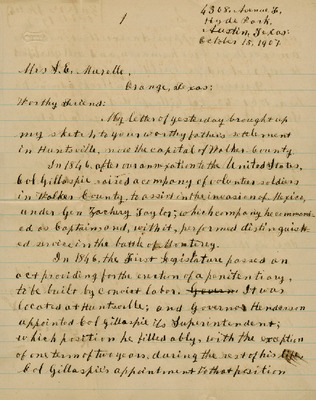 1
4308. Avenue F,
Hyde Park,
Austin, Texas:
October 15, 1907.
Mrs J. E.
Orange, Texas:
Worthy friend:
My letter of yesterday brought up
my sketch to your worthy father's settlement
in Huntsville, now the capital of Walker County.
In 1846, after our annexation to the United States,
Col Gillaspie raised a company of volunteer soldiers
in Walker County, to assist in the invasion of Mexico,
under Gen Zachery Taylor; which company he command-
ed as Captain and, with it, performed distinguish-
ed service in the battle of Monterey.
In 1846, the First Legislature passed an
act providing for the erection of a penitentiary,
to be built by convict labor. Govern It was
located at Huntsville; and Governor Henderson
appointed Col Gillaspie its Superintendent;
which position he filled ably, with the exception
of one term of two years, during the rest of his life.
Col Gillaspie's appointment to that position